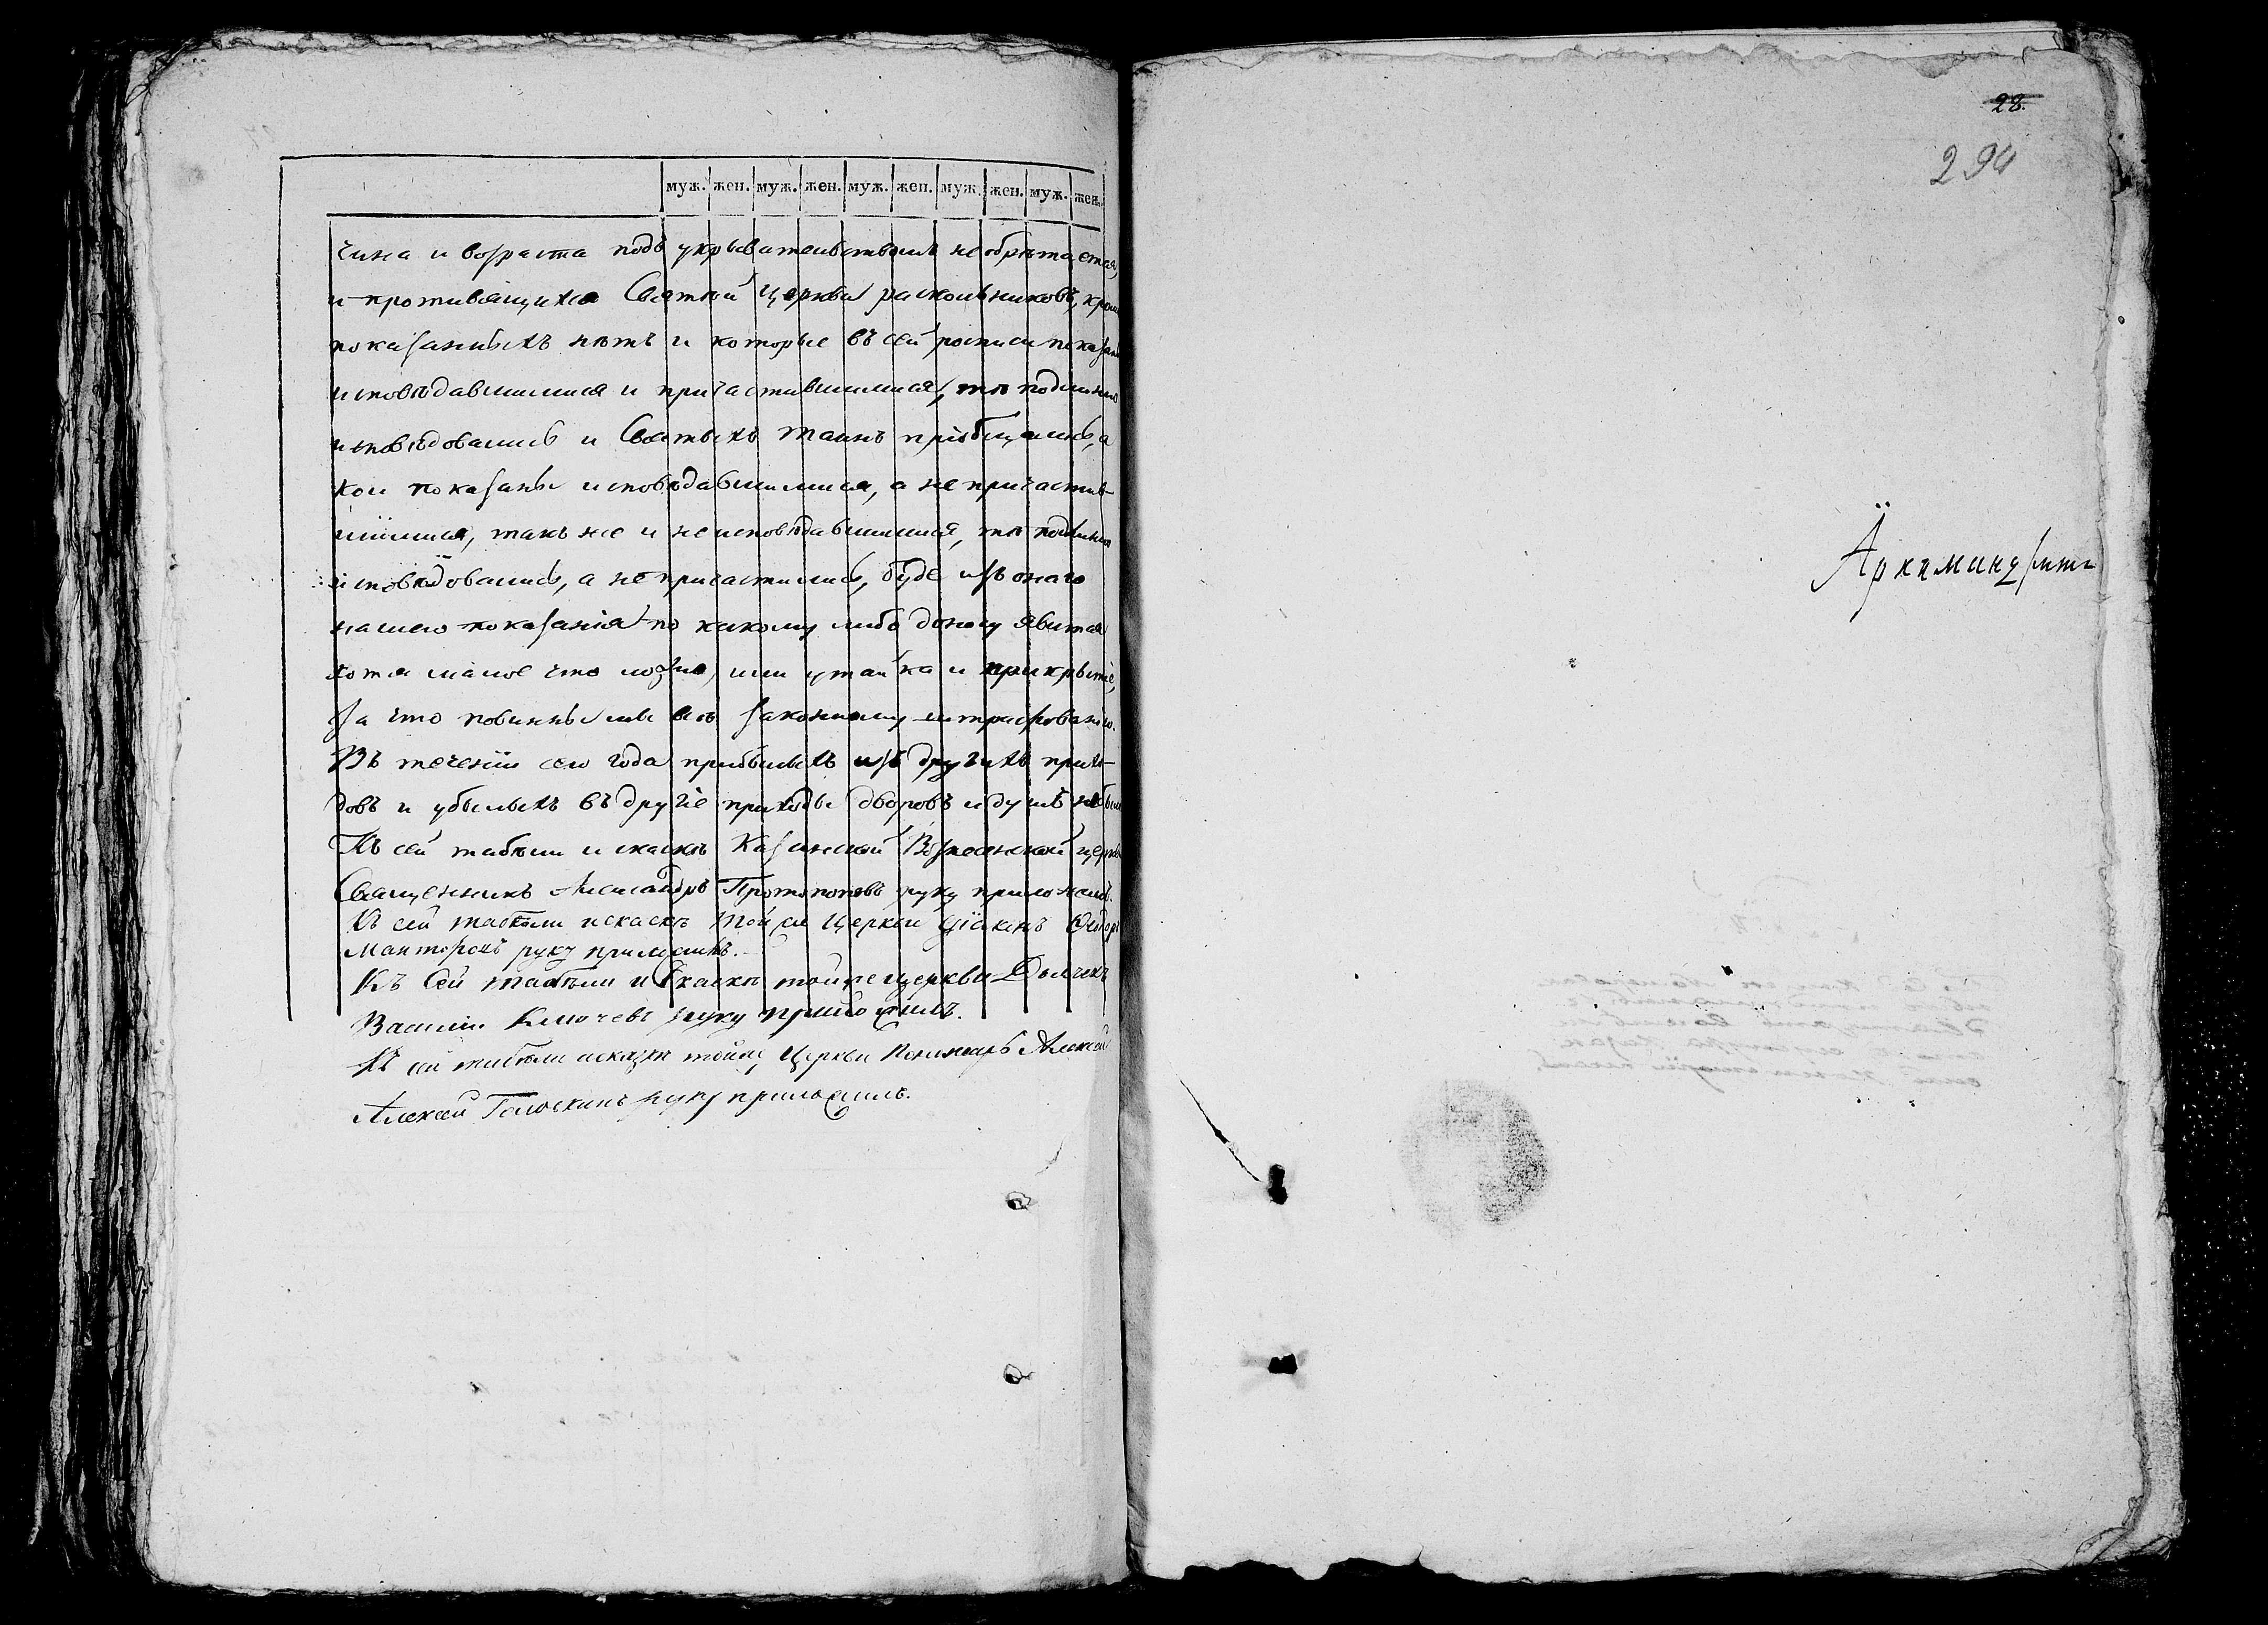 муж. жен. муж. жен. муж. жен. муж. жен. муж. жен.
чина и возраста подъ укрывательствомъ не обрѣтается,
и противящихся Святой Церкви раскольниковъ, кромѣ
показанныхъ нѣтъ и которые въ сей росписи показаны
исповѣдавшимися и причастившимися, тѣ подлинно
исповѣдовались и Святыхъ таинъ пріобщались, а
кои показаны исповѣдавшимися, а не причастив-
шимися, такъ же и не исповѣдавшимися, тѣ подлинно
исповѣдовались, а не причастились, буде изъ онаго
нашего показанія по какому либо доносу явится
хотя малое что ложно, или утайка и прикрытіе,
за что повинны мы всѣ законному штрафованію.
Въ теченіи сего года прибылыхъ изъ другихъ прихо-
довъ и убылыхъ въ другіе приходы дворовъ и душъ небыло
Къ сей табели и сказкѣ Казанской Вознесенской церкви
Священникъ Александръ Протопоповъ руку приложилъ.
Къ сей табели и сказкѣ той же Церкви діаконъ Ѳедоръ
руку приложилъ.
Къ Сей табели и Сказкѣ той же церкви Дьячекъ
Василій Ключевъ руку приложилъ.
Къ сей табели и сказкѣ той же Церкви Пономарь Алексей
Алексей руку приложилъ.
28.
294
Архимандритъ